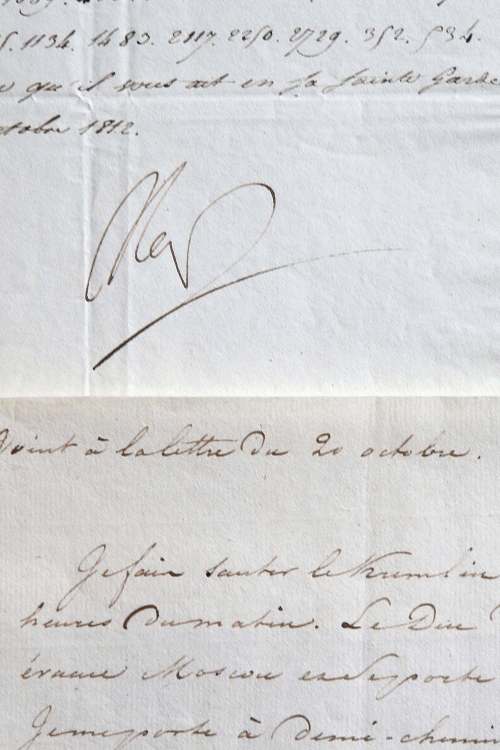 1134. 1483. 2117. 2250. 2729. 352. 534.
qu'il vous ait en sa Sainte Garde
octobre 1812.
Nap
joint à la lettre du 20 octobre.
Je fais sauter le Kremlin
heures du matin. Le Duc
évacue Moscou et se porte
Je me porte à demi-chemin